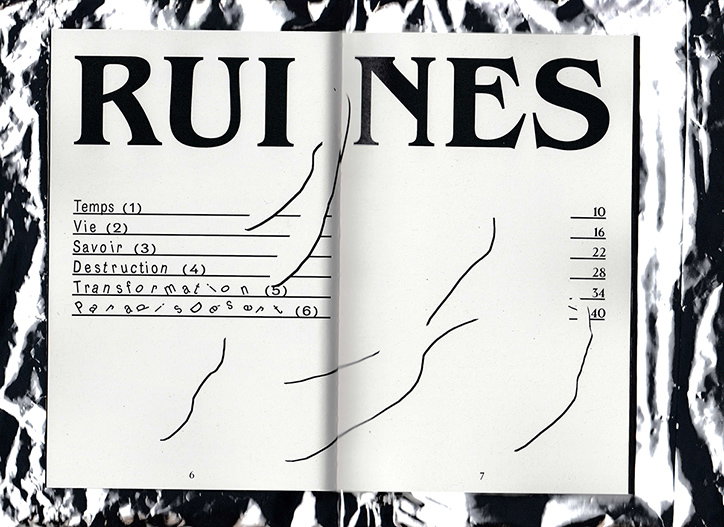 RUINES
Temps (1) 10
Vie (2) 16
Savoir (3) 22
Destruction (4) 28
Transformation (5) 34
ParadisDésert (6) 40
6 7